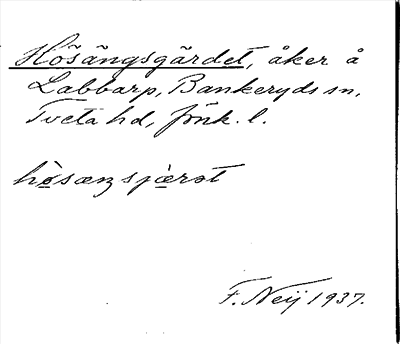 Hösängsgärdet, åker å
Labbarp, Bankeryds sn,
Tveta hd, Jönk. l.
hòsæŋsjæ̀rət
F. Neij 1937.